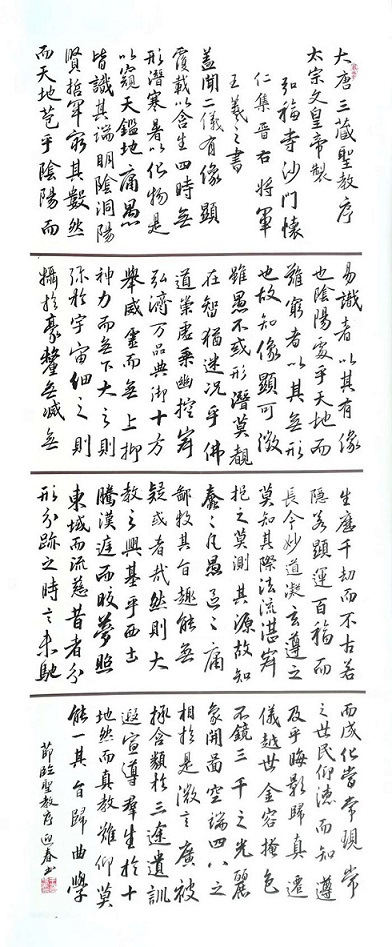 大唐三藏聖教序
太宗文皇帝製
弘福寺沙門懷
仁集晉右將軍
王羲之書
蓋聞二儀有像顯
覆載以含生四時無
形潛寒暑以化物是
以窺天鑑地庸愚
皆識其端明陰洞陽
賢哲罕窮其數然
而天地苞乎陰陽而
易識者以其有像
也陰陽處乎天地而
難窮者以其無形
也故知像顯可徵
雖愚不惑形潛莫覩
在智猶迷況乎佛
道崇虛乘幽控寂
弘濟万品典御十方
舉威靈而無上抑
神力而無下大之則
弥於宇宙細之則
攝於豪釐無滅無
生歷千劫而不古若
隱若顯運百福而
長今妙道凝玄遵之
莫知其際法流湛寂
挹之莫測其源故知
蠢々凡愚區々庸
鄙投其旨趣能無
疑或者哉然則大
教之興基乎西土
騰漢庭而皎夢照
東域而流慈昔者分
形分跡之時言未馳
而成化當常現常
之世民仰德而知遵
及乎晦影歸真遷
儀越世金容掩色
不鏡三千之光麗
象開圖空端四八之
相於是微言廣被
拯含類於三途遺訓
遐宣導群生於十
地然而真教難仰莫
能一其旨歸曲學
節臨聖教序 迎春书